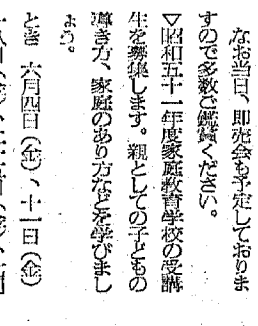 なお当日、即売会も予定しておりま
すので多数ご鑑賞ください。
▽昭和五十一年度家庭教育学校の受講
生を募集します。親としての子どもの
導き方、家庭のあり方などを学びまし
ょう。
とき 六月四日（金）、十一日（金）